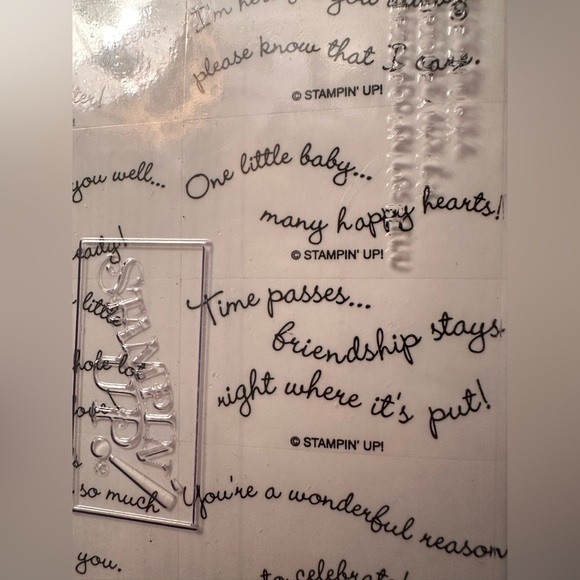 I'm
you
please know that I care.
© STAMPIN' UP!
you well...
One little baby...
many happy hearts!
© STAMPIN' UP!
eady!
little
Time passes...
friendship stays
right where it's put!
hole lot
© STAMPIN' UP!
STAMPIN'
UP!
so much
You're a wonderful reason
to celebrate!
you.